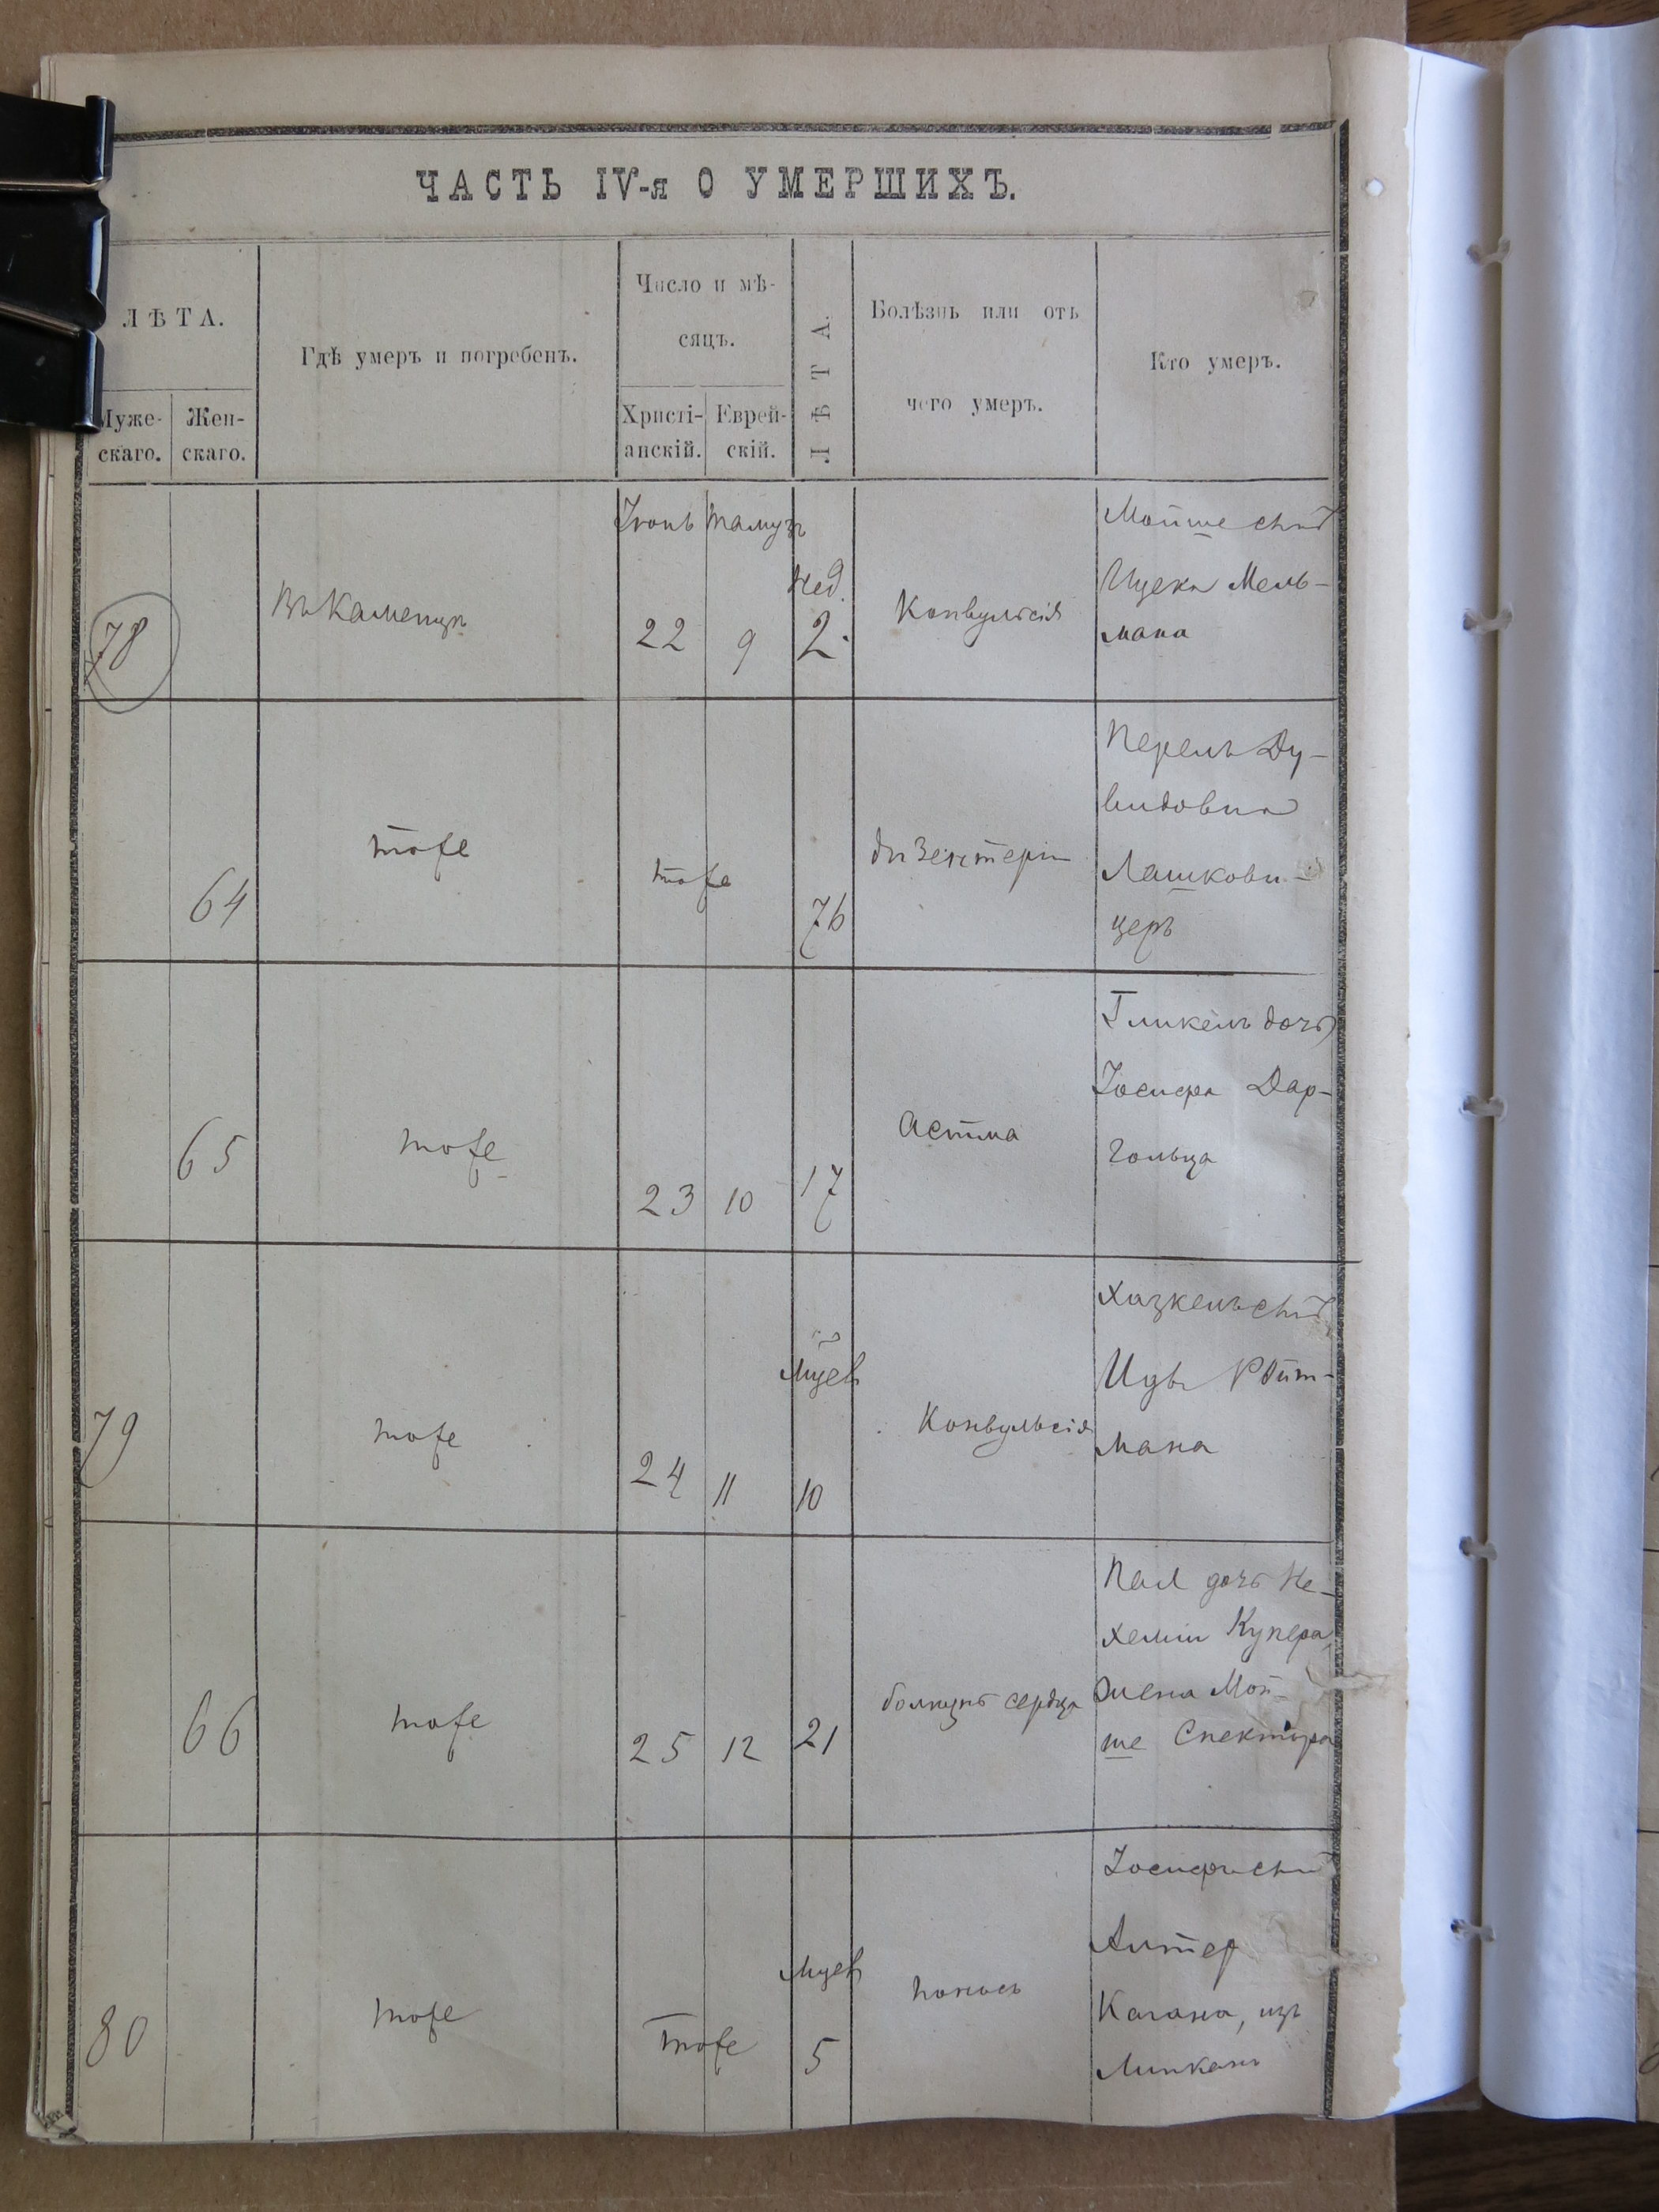 ЧАСТЬ IV-я О УМЕРШИХЪ.
ЛѢТА.
Муже-
скаго.
Жен-
скаго.
Гдѣ умеръ и погребенъ.
Число и мѣ-
сяцъ.
Христі-
анскій.
Еврей-
скій.
ЛѢТА.
Болѣзнь или отъ
чего умеръ.
Кто умеръ.
78
Въ Каменцѣ
Іюнь
22
Тамузъ
9
Нед.
2.
Конвульсія
Мойше сынъ
Ицека Мель-
мана
64
тоже
тоже
76
дизентерія
Перель Ду-
видовна
Лашкови-
церъ
65
тоже
23
10
17
Астма
Гликель дочь
Іосифа Дар-
гольца
79
тоже
24
11
Мцев
10
Конвульсія
Хазкель сынъ
Ицв Ройт-
мана
66
тоже
25
12
21
болѣзнь сердца
Пея дочь Не-
хеміи Купера
жена Мой-
ше Спектора
80
тоже
тоже
Мцев
5
поносъ
Іосифъ сынъ
Алтер
Кагана, изъ
Липканъ